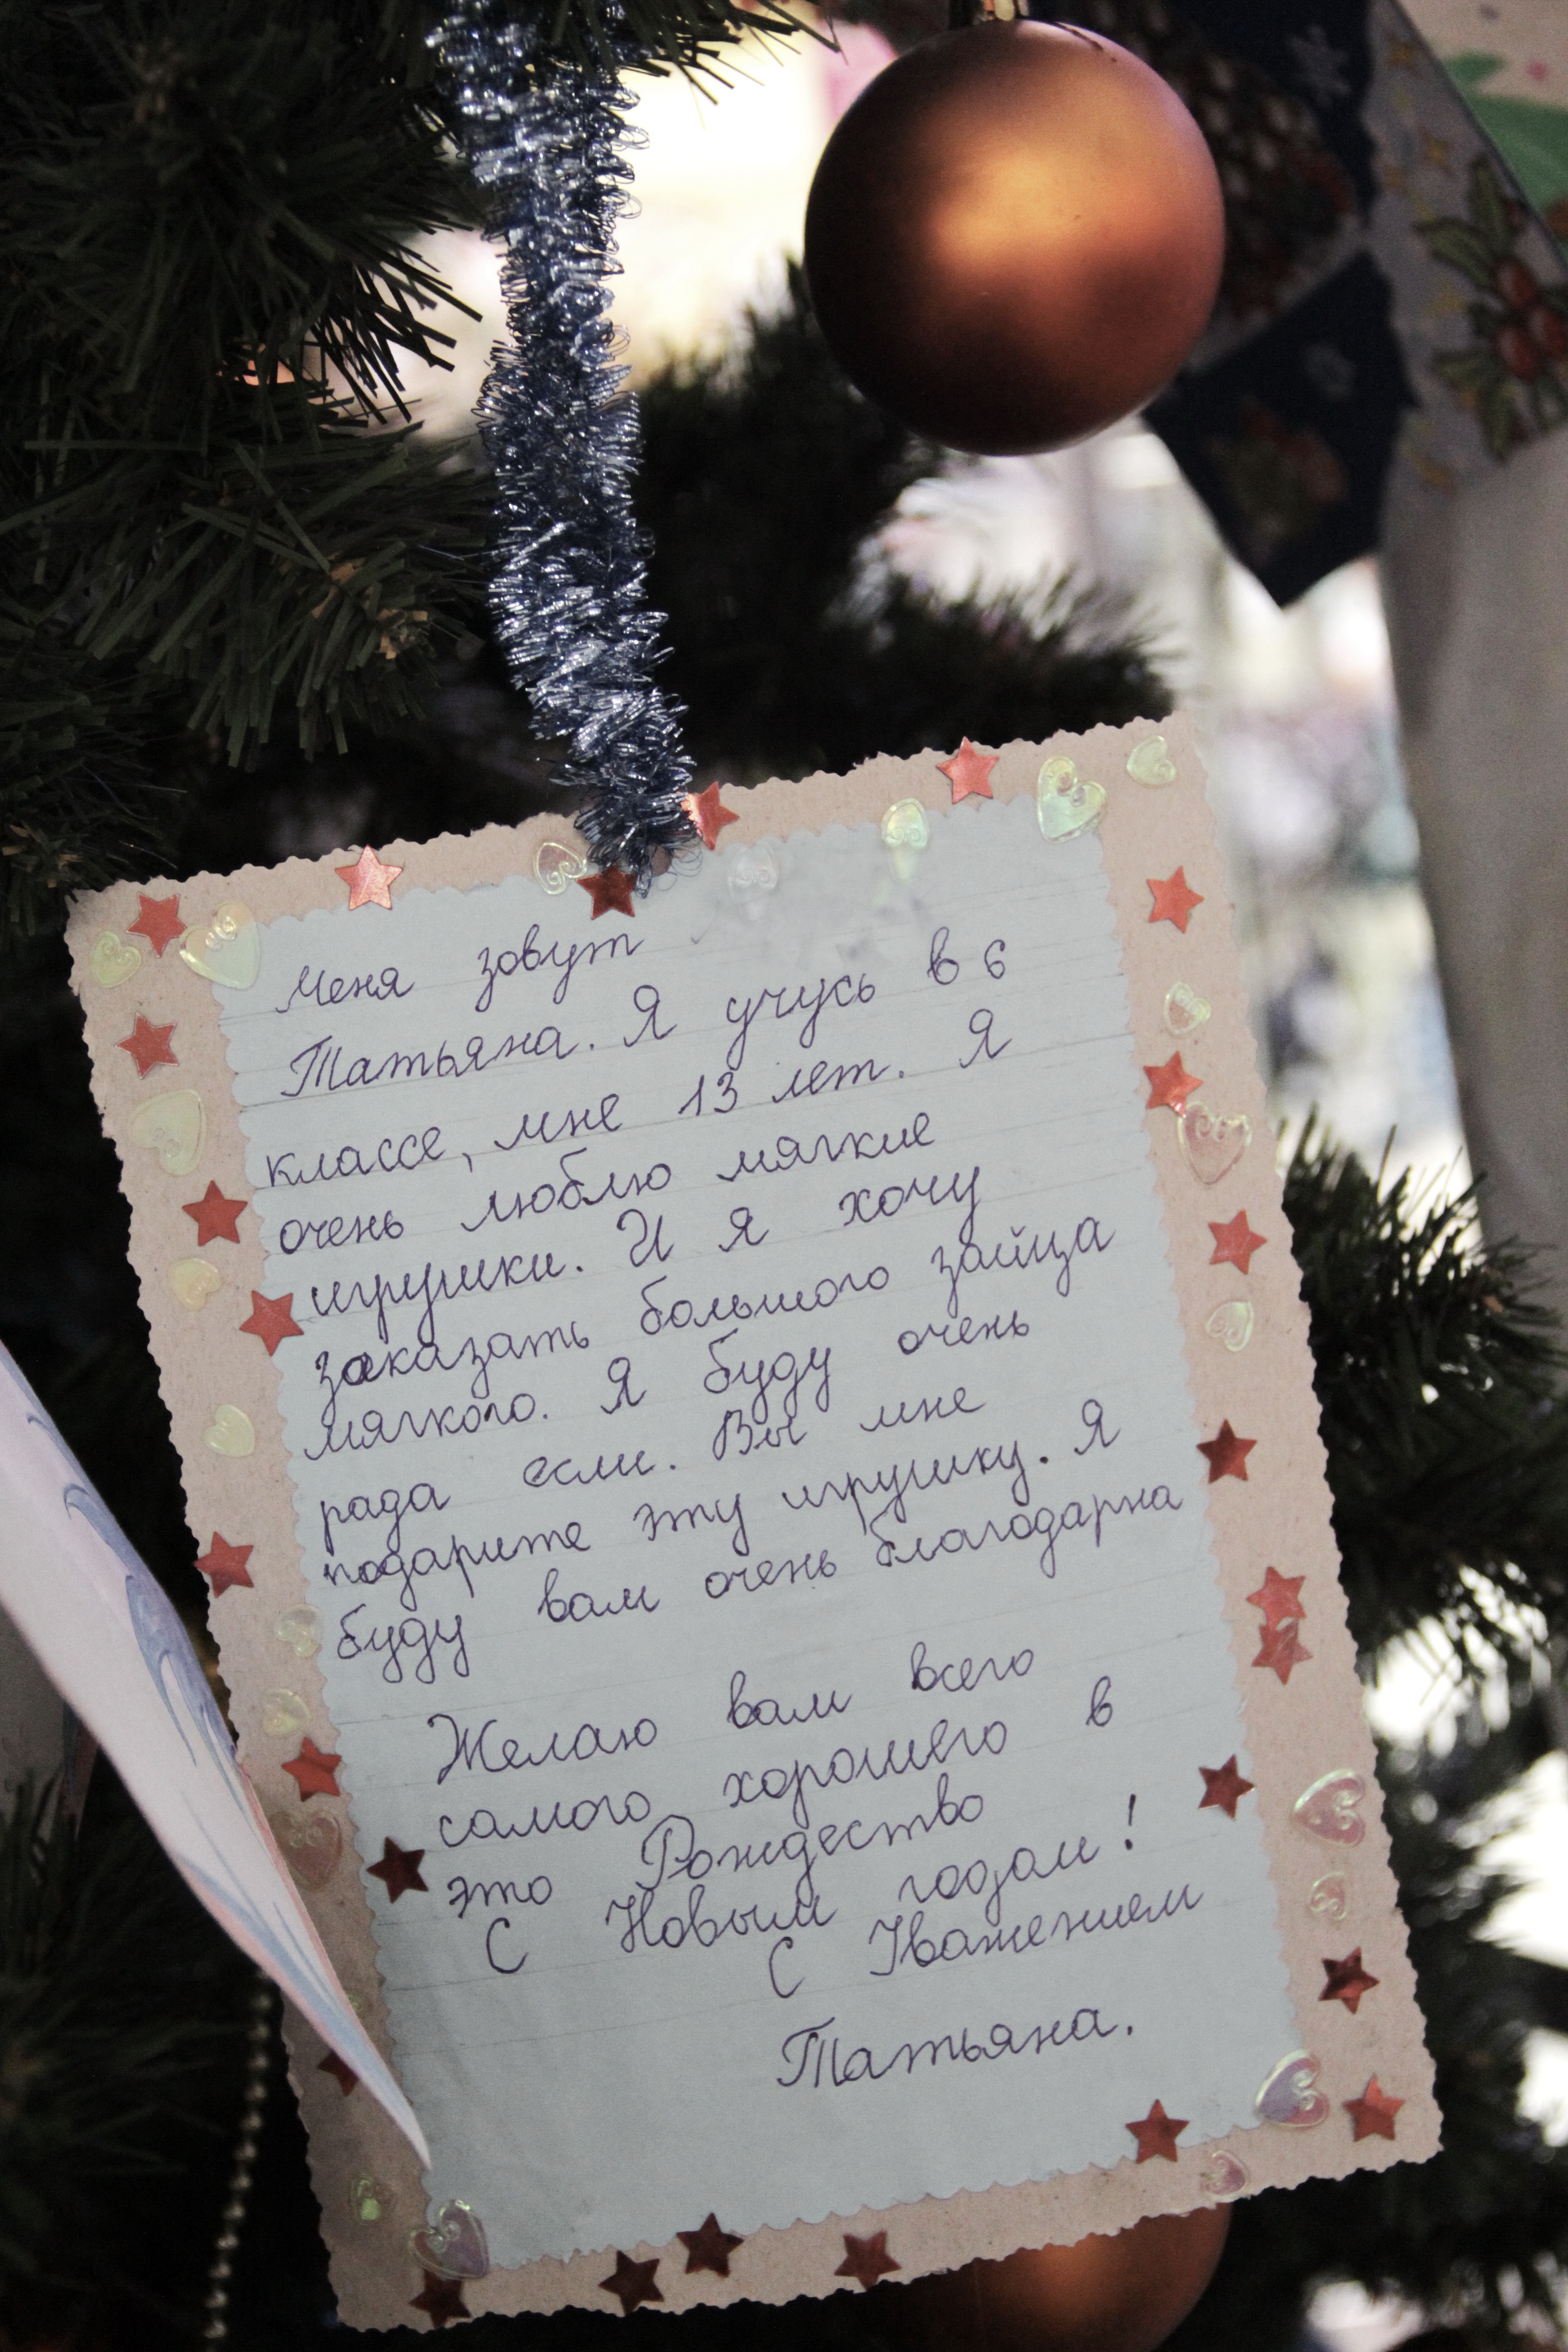 Меня зовут
Татьяна. Я учусь в 6
классе, мне 13 лет. Я
очень люблю мягкие
игрушки. И я хочу
заказать большого зайца
мягкого. Я буду очень
рада если. Вы мне
подарите эту игрушку. Я
буду вам очень благодарна
Желаю вам всего
самого хорошего в
это Рождество
С Новым годом!
С Уважением
Татьяна.